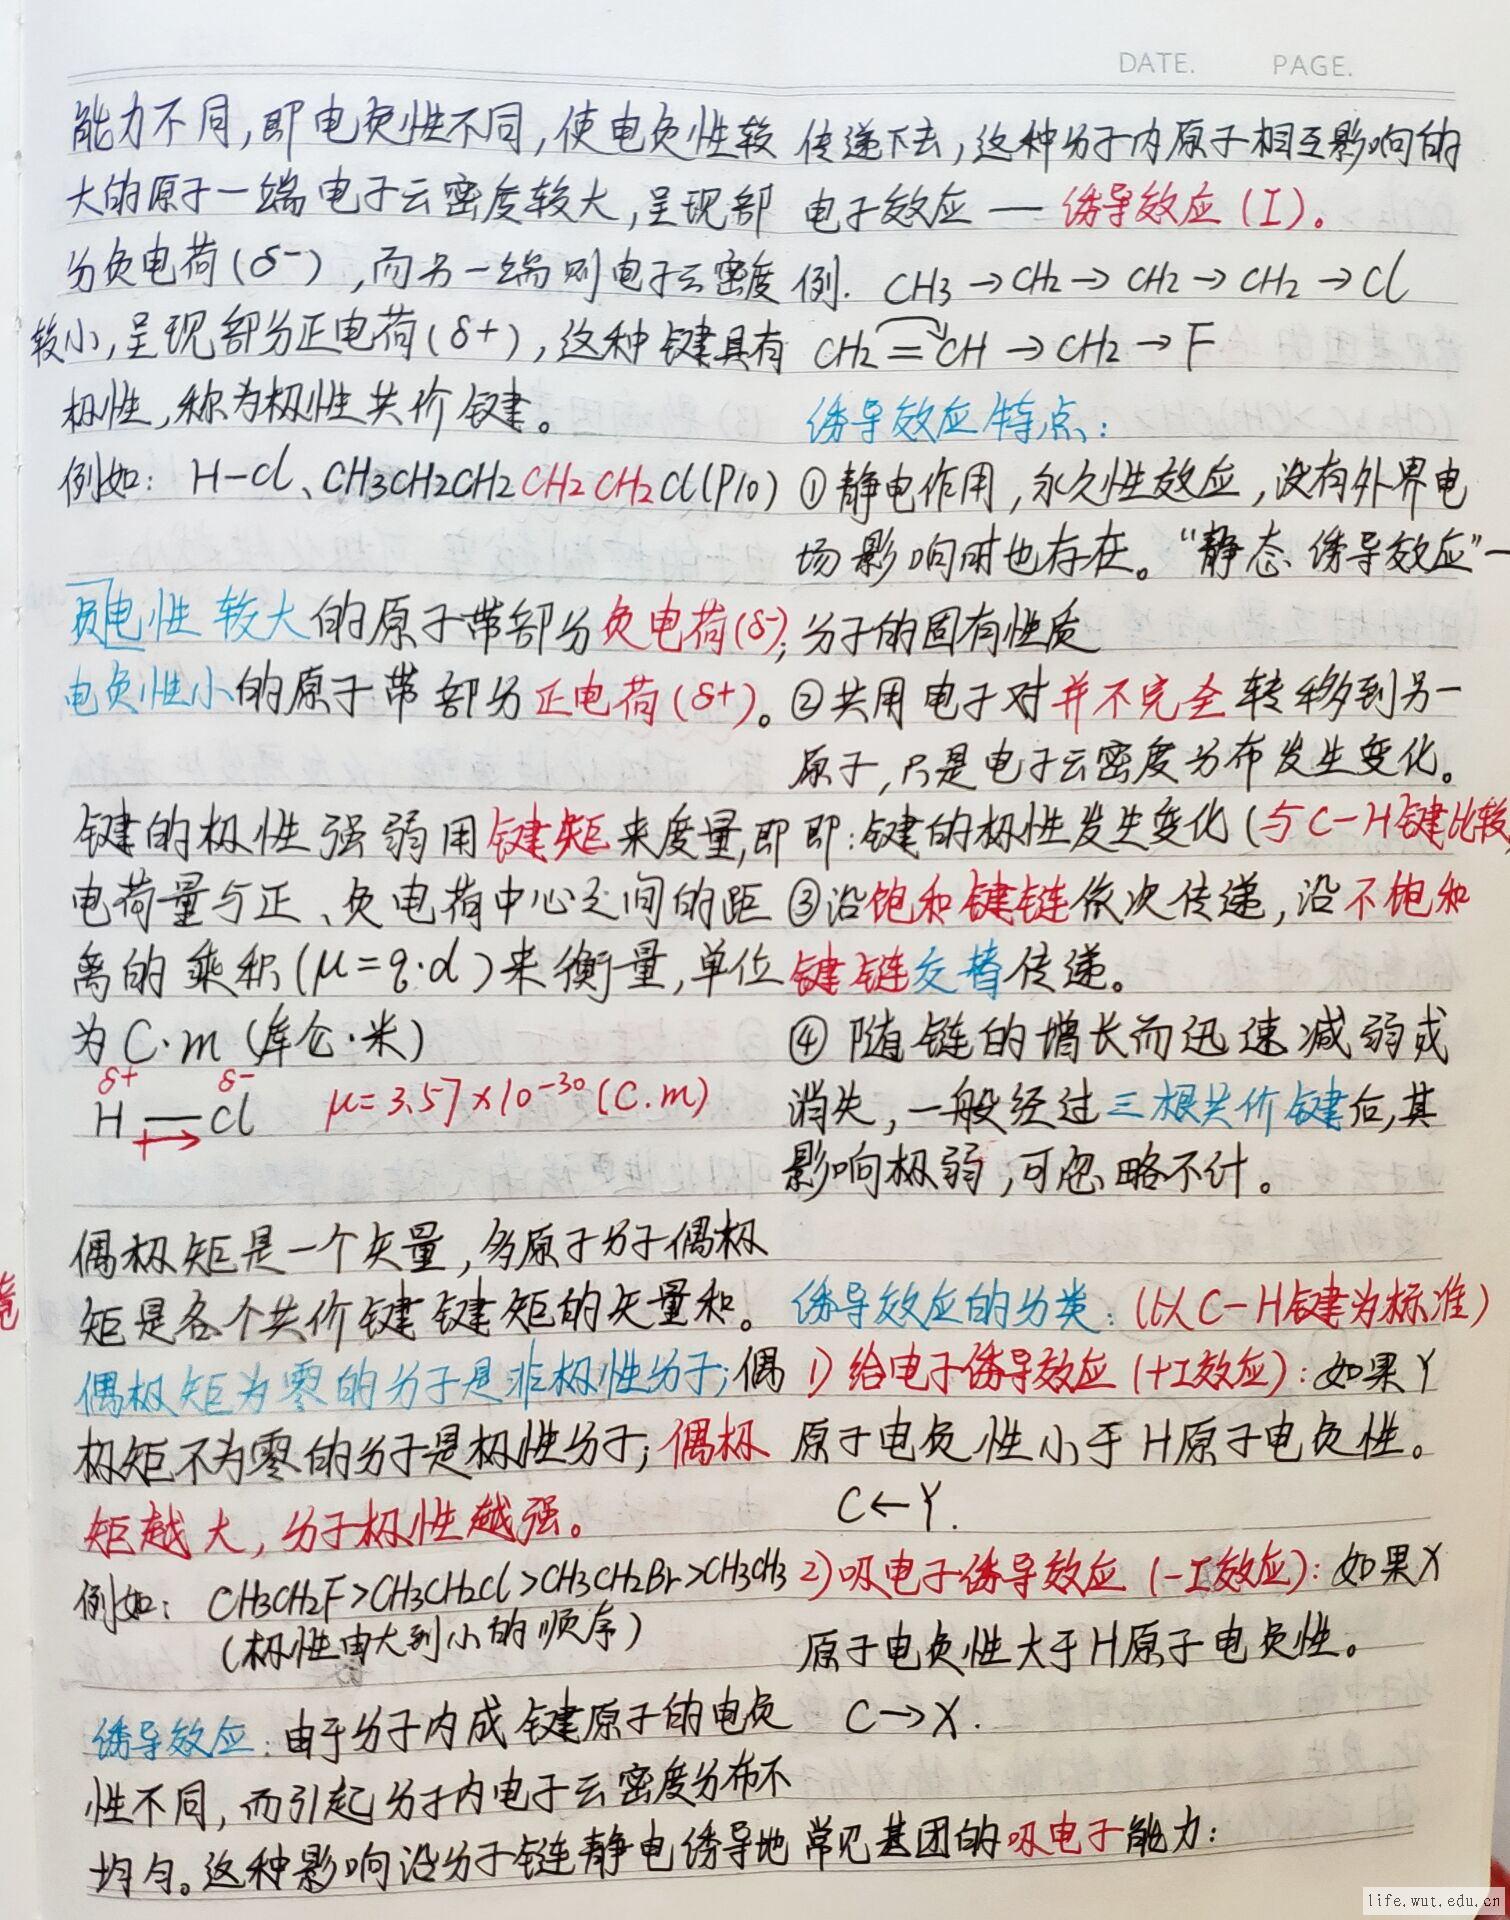 DATE. PAGE.
能力不同,即电负性不同,使电负性较
大的原子一端电子云密度较大,呈现部
分负电荷(δ-),而另一端则电子云密度
较小,呈现部分正电荷(δ+),这种键具有
极性,称为极性共价键。
例如: H-Cl、CH3CH2CH2CH2CH2Cl(P10)
负电性较大的原子带部分负电荷(δ-);
电负性小的原子带部分正电荷(δ+)。
键的极性强弱用键矩来度量,即
电荷量与正、负电荷中心之间的距
离的乘积(μ=q·d)来衡量,单位
为C·m(库仑·米)
δ+ δ-
H—Cl μ=3.57×10-30(C.m)
偶极矩是一个矢量,多原子分子偶极
矩是各个共价键键矩的矢量和。
偶极矩为零的分子是非极性分子;偶
极矩不为零的分子是极性分子;偶极
矩越大,分子极性越强。
例如: CH3CH2F>CH3CH2Cl>CH3CH2Br>CH3CH3
(极性由大到小的顺序)
诱导效应:由于分子内成键原子的电负
性不同,而引起分子内电子云密度分布不
均匀。这种影响沿分子链静电诱导地
传递下去,这种分子内原子相互影响的
电子效应—诱导效应(I)。
例. CH3→CH2→CH2→CH2→Cl
CH2=CH→CH2→F
诱导效应特点:
①静电作用,永久性效应,没有外界电
场影响时也存在。“静态诱导效应”一
分子的固有性质
②共用电子对并不完全转移到另一
原子,只是电子云密度分布发生变化。
即:键的极性发生变化(与C-H键比较)
③沿饱和键链依次传递,沿不饱和
键链交替传递。
④随链的增长而迅速减弱或
消失,一般经过三根共价键后,其
影响极弱,可忽略不计。
诱导效应的分类:(以C-H键为标准)
1)给电子诱导效应(+I效应):如果Y
原子电负性小于H原子电负性。
C←Y.
2)吸电子诱导效应(-I效应):如果X
原子电负性大于H原子电负性。
C→X.
常见基团的吸电子能力:
life.wut.edu.cn